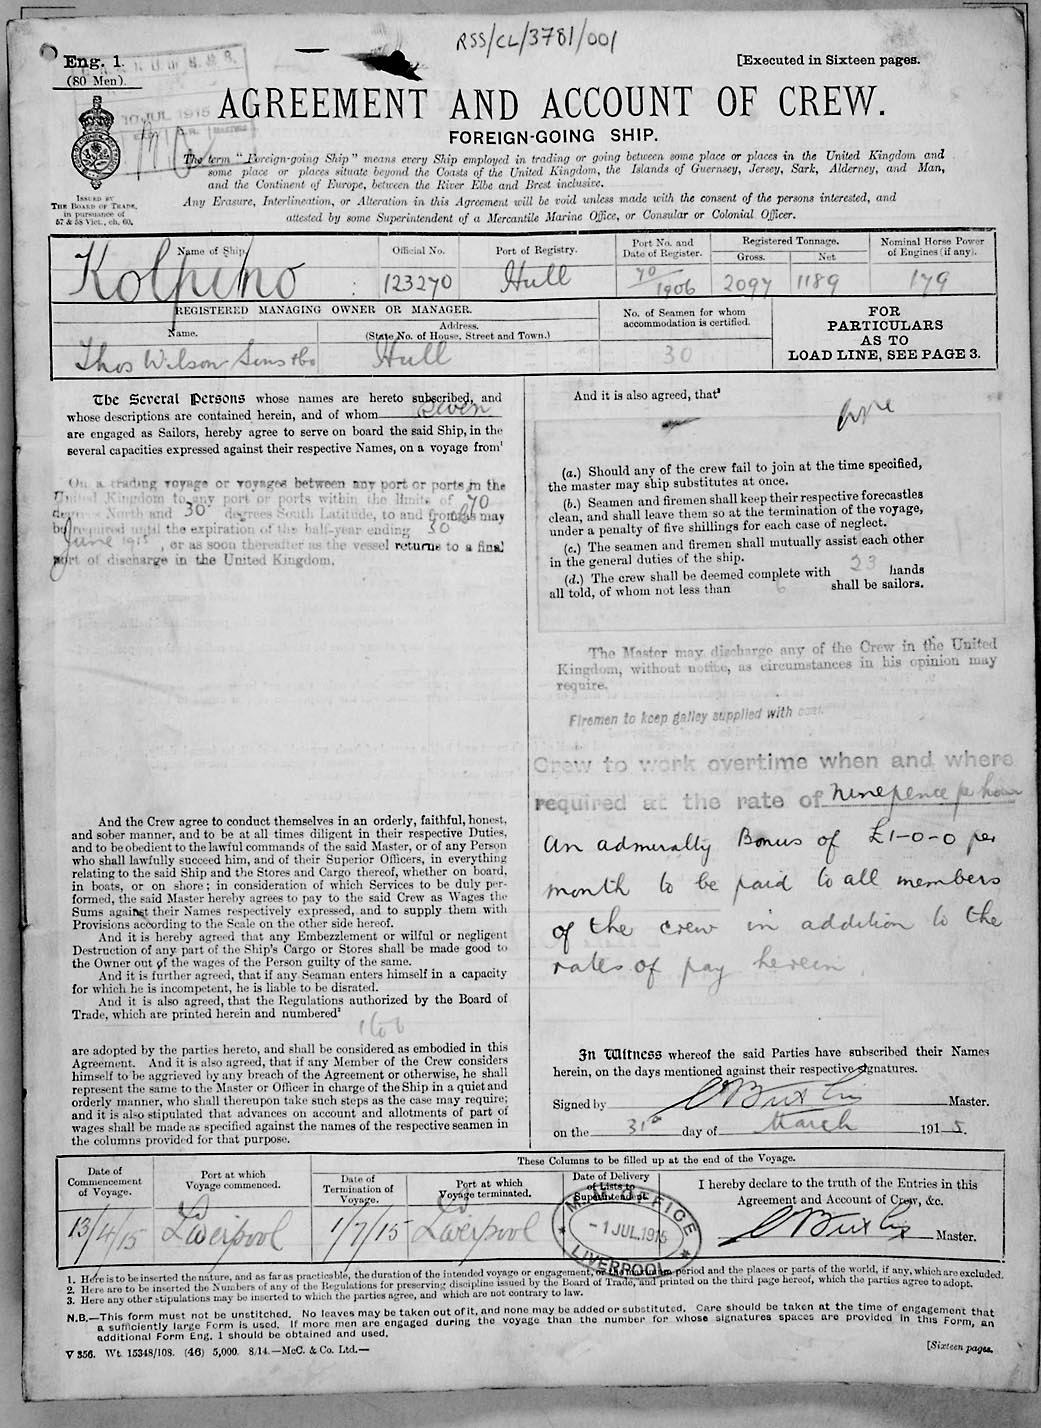 RSS/CL/3781/001
Eng. 1.
(80 Men).
[Executed in Sixteen pages.
10 JUL 1915
AGREEMENT AND ACCOUNT OF CREW.
FOREIGN-GOING SHIP.
The term "Foreign-going Ship" means every Ship employed in trading or going between some place or places in the United Kingdom and
some place or places situate beyond the Coasts of the United Kingdom, the Islands of Guernsey, Jersey, Sark, Alderney, and Man,
and the Continent of Europe, between the River Elbe and Brest inclusive.
Any Erasure, Interlineation, or Alteration in this Agreement will be void unless made with the consent of the persons interested, and
attested by some Superintendent of a Mercantile Marine Office, or Consular or Colonial Officer.
ISSUED BY
THE BOARD OF TRADE,
in pursuance of
57 & 58 Vict., ch. 60.
Name of Ship
Official No.
Port of Registry.
Port No. and
Date of Register.
Registered Tonnage.
Gross.
Net
Nominal Horse Power
of Engines (if any).
Kolpino
123270
Hull
70/1906
2097
1189
179
REGISTERED MANAGING OWNER OR MANAGER.
Name.
Address.
(State No. of House, Street and Town.)
No. of Seamen for whom
accommodation is certified.
FOR
PARTICULARS
AS TO
LOAD LINE, SEE PAGE 3.
Thos Wilson Sons & Co
Hull
30
The Several Persons whose names are hereto subscribed, and
whose descriptions are contained herein, and of whom seven
are engaged as Sailors, hereby agree to serve on board the said Ship, in the
several capacities expressed against their respective Names, on a voyage from¹
On a trading voyage or voyages between any port or ports in the
United Kingdom to any port or ports within the limits of 70
degrees North and 30 degrees South Latitude, to and from as may
be required until the expiration of the half-year ending 30
June 1915, or as soon thereafter as the vessel returns to a final
port of discharge in the United Kingdom.
And the Crew agree to conduct themselves in an orderly, faithful, honest,
and sober manner, and to be at all times diligent in their respective Duties,
and to be obedient to the lawful commands of the said Master, or of any Person
who shall lawfully succeed him, and of their Superior Officers, in everything
relating to the said Ship and the Stores and Cargo thereof, whether on board,
in boats, or on shore; in consideration of which Services to be duly per-
formed, the said Master hereby agrees to pay to the said Crew as Wages the
Sums against their Names respectively expressed, and to supply them with
Provisions according to the Scale on the other side hereof.
And it is hereby agreed that any Embezzlement or wilful or negligent
Destruction of any part of the Ship's Cargo or Stores shall be made good to
the Owner out of the wages of the Person guilty of the same.
And it is further agreed, that if any Seaman enters himself in a capacity
for which he is incompetent, he is liable to be disrated.
And it is also agreed, that the Regulations authorized by the Board of
Trade, which are printed herein and numbered²
1 to 6
are adopted by the parties hereto, and shall be considered as embodied in this
Agreement. And it is also agreed, that if any Member of the Crew considers
himself to be aggrieved by any breach of the Agreement or otherwise, he shall
represent the same to the Master or Officer in charge of the Ship in a quiet and
orderly manner, who shall thereupon take such steps as the case may require;
and it is also stipulated that advances on account and allotments of part of
wages shall be made as specified against the names of the respective seamen in
the columns provided for that purpose.
And it is also agreed, that³
(a.) Should any of the crew fail to join at the time specified,
the master may ship substitutes at once.
(b.) Seamen and firemen shall keep their respective forecastles
clean, and shall leave them so at the termination of the voyage,
under a penalty of five shillings for each case of neglect.
(c.) The seamen and firemen shall mutually assist each other
in the general duties of the ship.
(d.) The crew shall be deemed complete with 23 hands
all told, of whom not less than 6 shall be sailors.
The Master may discharge any of the Crew in the United
Kingdom, without notice, as circumstances in his opinion may
require.
Firemen to keep galley supplied with coal.
Crew to work overtime when and where
required at the rate of ninepence per hour
An admiralty Bonus of £1-0-0 per
month to be paid to all members
of the crew in addition to the
rates of pay herein.
In Witness whereof the said Parties have subscribed their Names
herein, on the days mentioned against their respective signatures.
Signed by Master.
on the 31st day of March 1915.
These Columns to be filled up at the end of the Voyage.
Date of
Commencement
of Voyage.
Port at which
Voyage commenced.
Date of
Termination of
Voyage.
Port at which
Voyage terminated.
Date of Delivery
of Lists to
Superintendent.
I hereby declare to the truth of the Entries in this
Agreement and Account of Crew, &c.
Master.
13/4/15
Liverpool
1/7/15
Liverpool
OFFICE
-1 JUL.1915
LIVERPOOL
1. Here is to be inserted the nature, and as far as practicable, the duration of the intended voyage or engagement, or the maximum period and the places or parts of the world, if any, which are excluded.
2. Here are to be inserted the Numbers of any of the Regulations for preserving discipline issued by the Board of Trade, and printed on the third page hereof, which the parties agree to adopt.
3. Here any other stipulations may be inserted to which the parties agree, and which are not contrary to law.
N.B.—This form must not be unstitched. No leaves may be taken out of it, and none may be added or substituted. Care should be taken at the time of engagement that
a sufficiently large Form is used. If more men are engaged during the voyage than the number for whose signatures spaces are provided in this Form, an
additional Form Eng. 1 should be obtained and used.
V 356. Wt. 15348/108. (46) 5,000. 8/14.—McC. & Co. Ltd.—
[Sixteen pages.